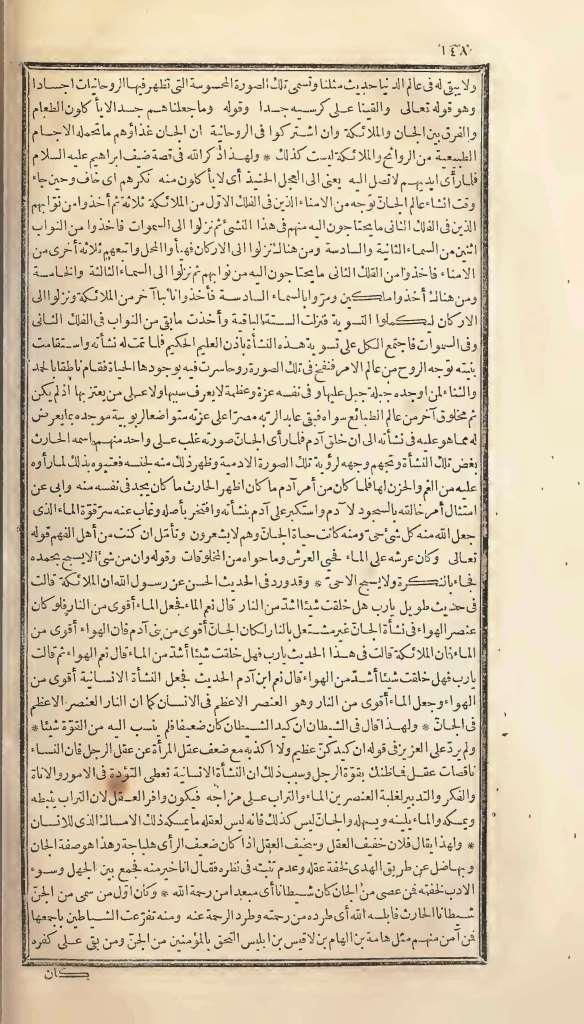 ١٤٨
ولا يبقى له فى عالم الدنيا حديث مثلنا وتسمى تلك الصورة المحسوسة التى تظهر فيها الروحانيات اجسادا
وهو قوله تعالى والقينا على كرسيه جسدا وقوله وما جعلناهم جسدا لا يأكلون الطعام
والفرق بين الجان والملائكة وان اشتركوا فى الروحانية ان الجان غذاؤهم ما تحمله الاجسام
الطبيعية من الروائح والملائكة ليست كذلك * ولهذا ذكر الله فى قصة ضيف ابراهيم عليه السلام
فلما رأى ايديهم لا تصل اليه يعنى الى العجل الحنيذ أى لا يأكلون منه نكرهم اى خاف وحين جاء
وقت انشاء عالم الجان توجه من الامناء الذين فى الفلك الاول من الملائكة ثلاثة ثم أخذوا من نوابهم
الذين فى الفلك الثانى ما يحتاجون اليه منهم فى هذا النشئ ثم نزلوا الى السموات فاخذوا من النواب
اثنين من السماء الثانية والسادسة ومن هنالك نزلوا الى الاركان فهيأوا المحل واتبعهم ثلاثة أخرى من
الامناء فاخذوا من الفلك الثانى ما يحتاجون اليه من نوابهم ثم نزلوا الى السماء الثالثة والخامسة
ومن هنالك أخذوا ملكين ومروا بالسماء السادسة فأخذوا نائبا آخر من الملائكة ونزلوا الى
الاركان ليكملوا التسوية فنزلت الستة الباقية وأخذت ما بقى من النواب فى الفلك الثانى
وفى السموات فاجتمع الكل على تسوية هذه النشأة باذن العليم الحكيم فلما تمت له نشأته واستقامت
بنيته توجه الروح من عالم الامر فنفخ فى تلك الصورة روحا سرت فيه بوجودها الحياة فقام ناطقا بالحمد
والثناء لمن اوجده جبلة جبل عليها وفى نفسه عزة وعظمة لا يعرف سببها ولا على من يعتز بها اذ لم يكن
ثم مخلوق آخر من عالم الطبائع سواه فبقى عابدا لربه مصرا على عزته متواضعا لربوبية موجده بما يعرض
له مما هو عليه فى نشأته الى ان خلق آدم فلما رأى الجان صورته غلب على واحد منهم اسمه الحارث
بغض تلك النشأة وتجهم وجهه لرؤية تلك الصورة الادمية وظهر ذلك منه لجنسه فعتبوه بذلك لما رأوه
عليه من الغم والحزن لها فلما كان من أمر آدم ما كان اظهر الحارث ما كان يجد فى نفسه منه وابى عن
امتثال أمر خالقه بالسجود لآدم واستكبر على آدم بنشأته وافتخر بأصله وغاب عنه سر قوة الماء الذى
جعل الله منه كل شئ حى ومنه كانت حياة الجان وهم لا يشعرون وتأمل ان كنت من أهل الفهم قوله
تعالى وكان عرشه على الماء فحيى العرش وما حواه من المخلوقات وقوله وان من شئ الا يسبح بحمده
فجاء بالنكرة ولا يسبح الا حى * وقد ورد فى الحديث الحسن عن رسول الله ان الملائكة قالت
فى حديث طويل يارب هل خلقت شيئا اشد من النار قال نعم الماء فجعل الماء أقوى من النار فلو كان
عنصر الهواء فى نشأة الجان غير مشتعل بالنار لكان الجان أقوى من بنى آدم فان الهواء أقوى من
الماء فان الملائكة قالت فى هذا الحديث يارب فهل خلقت شيئا أشد من الماء قال نعم الهواء ثم قالت
يارب فهل خلقت شيئا أشد من الهواء قال نعم ابن آدم الحديث فجعل النشأة الانسانية أقوى من
الهواء وجعل الماء أقوى من النار وهو العنصر الاعظم فى الانسان كما ان النار العنصر الاعظم
فى الجان * ولهذا قال فى الشيطان ان كيد الشيطان كان ضعيفا فلم ينسب اليه من القوة شيئا *
ولم يرد على العزيز فى قوله ان كيدكن عظيم ولا أكذبه مع ضعف عقل المرأة عن عقل الرجل فان النساء
ناقصات عقل فما ظنك بقوة الرجل وسبب ذلك ان النشأة الانسانية تعطى التؤدة فى الامور والاناة
والفكر والتدبير لغلبة العنصرين الماء والتراب على مزاجه فيكون وافر العقل لان التراب يثبطه
ويمسكه والماء يلينه ويسهله والجان ليس كذلك فانه ليس لعقله ما يمسكه ذلك الامساك الذى للانسان
* ولهذا يقال فلان خفيف العقل وسخيف العقل اذا كان ضعيف الرأى هلباجة وهذا هو صفة الجان
وبها ضل عن طريق الهدى لخفة عقله وعدم تثبته فى نظره فقال انا خير منه فجمع بين الجهل وسوء
الادب لخفته فمن عصى من الجان كان شيطانا أى مبعدا من رحمة الله * وكان اول من سمى من الجن
شيطانا الحارث فابلسه الله أى طرده من رحمته وطرد الرحمة عنه ومنه تفرعت الشياطين باجمعها
فمن آمن منهم مثل هامة بن الهام بن لاقيس بن ابليس التحق بالمؤمنين من الجن ومن بقى على كفره
كان